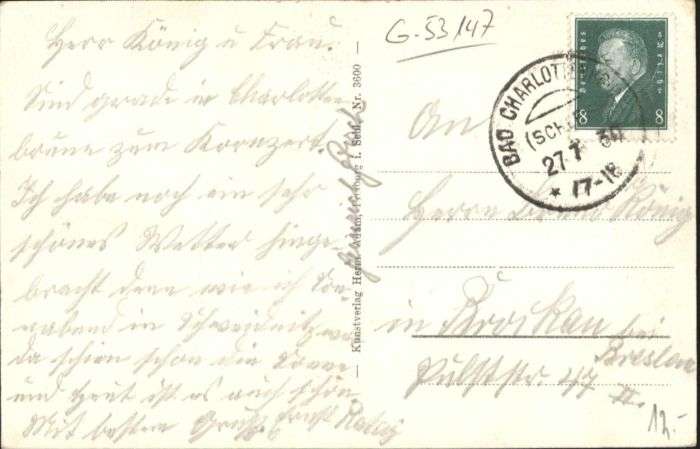 G-53147
Herr König u Frau.
Sind grade in Charlotten
brunn zum Konzert.
Ich habe noch ein sehr
schönes Wetter hinge-
bracht denn wie ich Son-
nabend in Schweidnitz war
da schien schon die Sonne
und heut ist es auch schön
Mit bestem Gruß Ernst
— Kunstverlag Herm. Adam, i. Schl. Nr. 3600 —
Deutsches Reich
8 8
BAD CHARLOTTE
(SCHL
27 7 30
* 17-18
An
Herrn König
in Brockau bei
Breslau
str. 47 II.
12.-